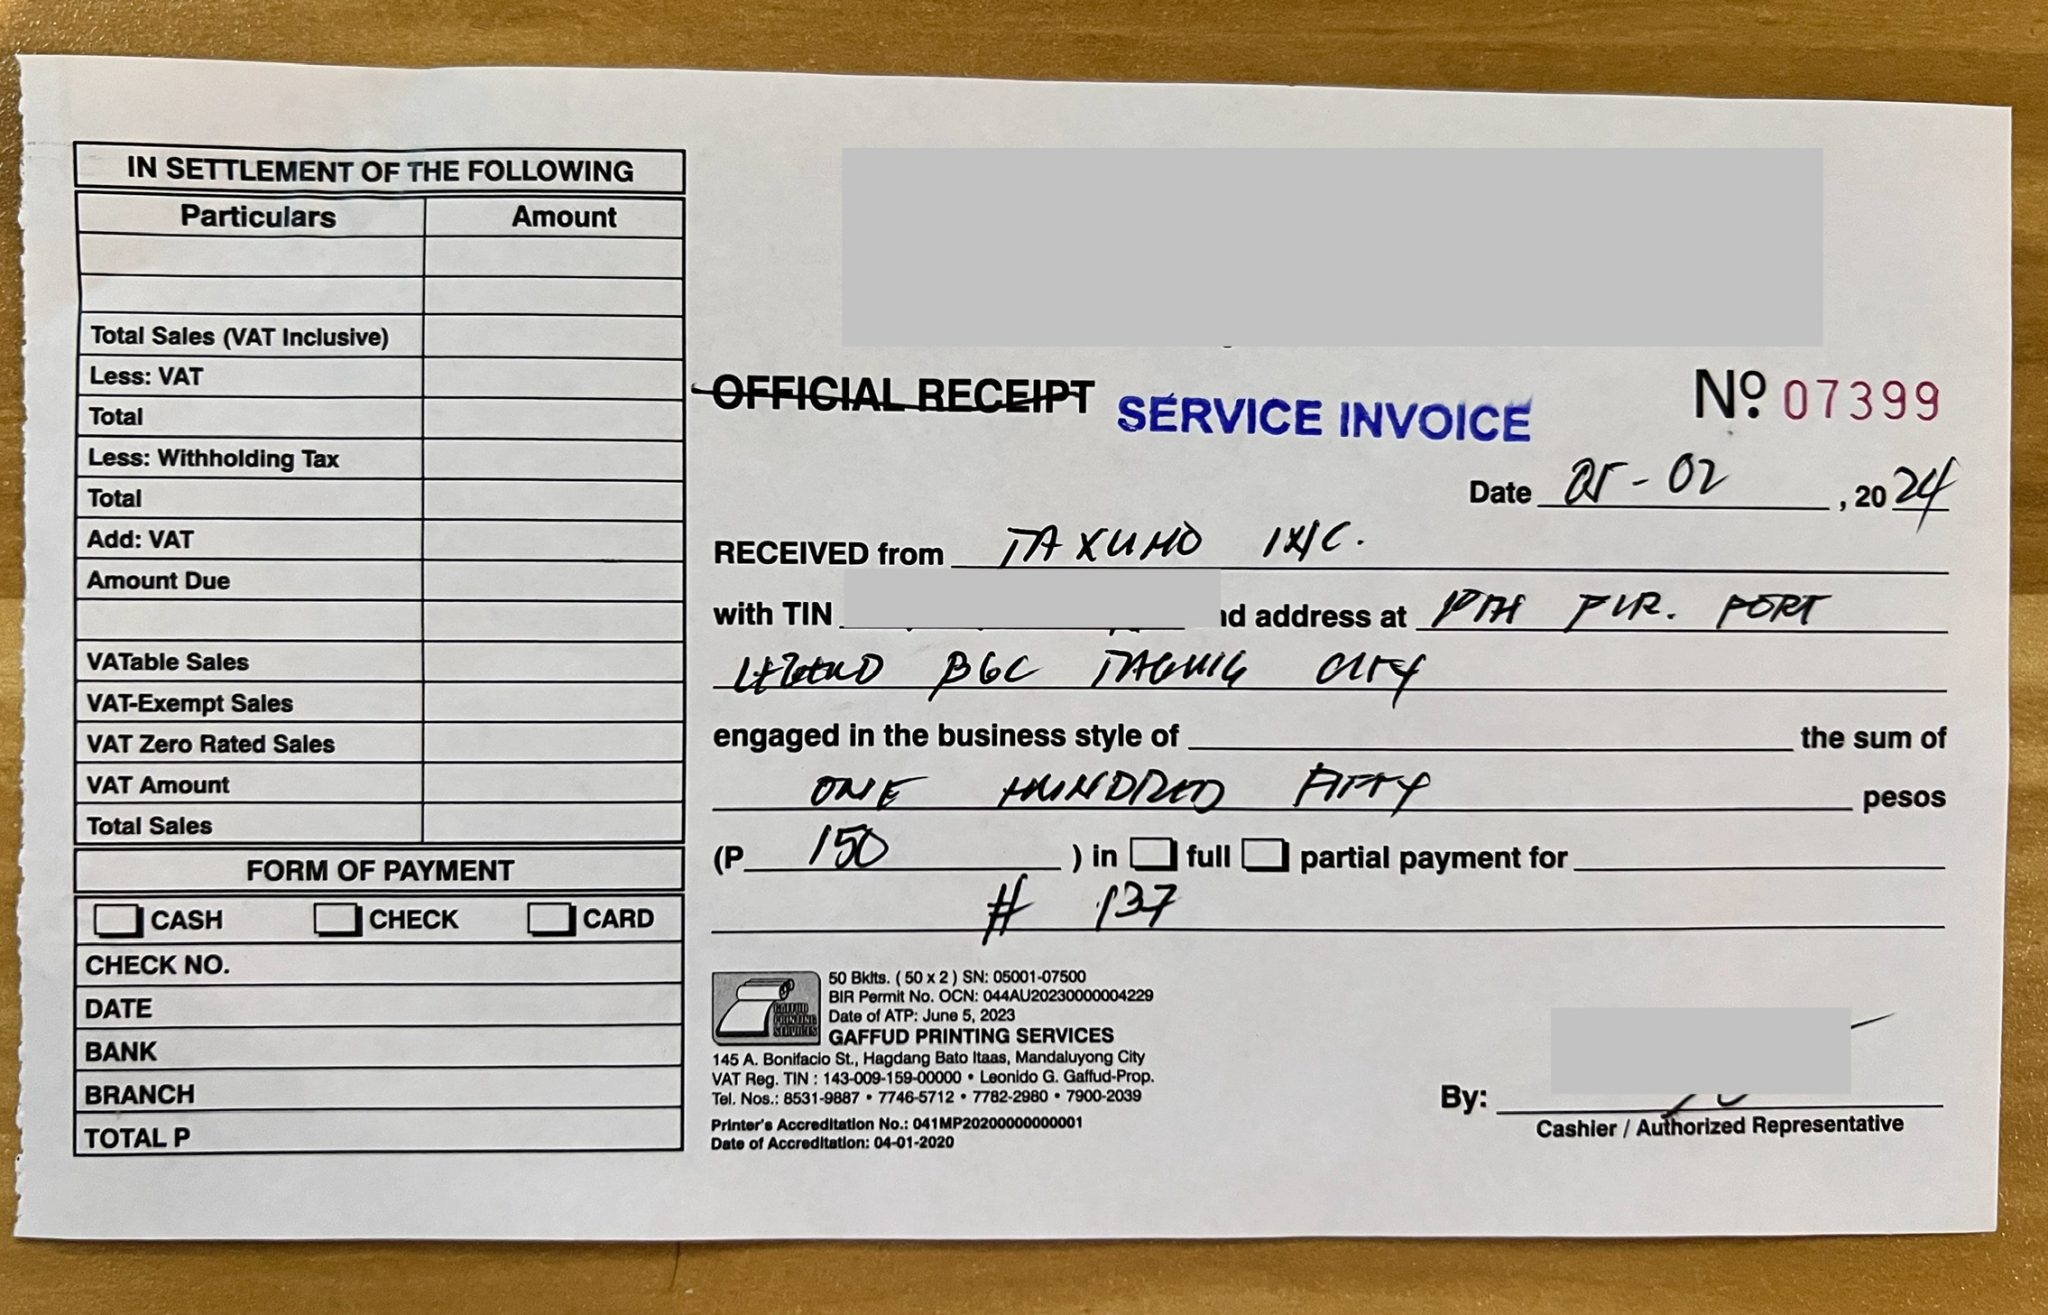 IN SETTLEMENT OF THE FOLLOWING
Particulars Amount
Total Sales (VAT Inclusive)
Less: VAT
Total
Less: Withholding Tax
Total
Add: VAT
Amount Due
VATable Sales
VAT-Exempt Sales
VAT Zero Rated Sales
VAT Amount
Total Sales
FORM OF PAYMENT
CASH CHECK CARD
CHECK NO.
DATE
BANK
BRANCH
TOTAL P
OFFICIAL RECEIPT SERVICE INVOICE
Nº 07399
Date 05-02, 2024
RECEIVED from TAXUMO INC.
with TIN nd address at 10TH FLR. FORT
LEGEND BGC TAGUIG CITY
engaged in the business style of the sum of
ONE HUNDRED FIFTY pesos
(P 150 ) in full partial payment for
# 137
50 Bklts. ( 50 x 2 ) SN: 05001-07500
BIR Permit No. OCN: 044AU20230000004229
Date of ATP: June 5, 2023
GAFFUD PRINTING SERVICES
GAFFUD PRINTING SERVICES
145 A. Bonifacio St., Hagdang Bato Itaas, Mandaluyong City
VAT Reg. TIN : 143-009-159-00000 • Leonido G. Gaffud-Prop.
Tel. Nos.: 8531-9887 • 7746-5712 • 7782-2980 • 7900-2039
Printer's Accreditation No.: 041MP20200000000001
Date of Accreditation: 04-01-2020
By:
Cashier / Authorized Representative